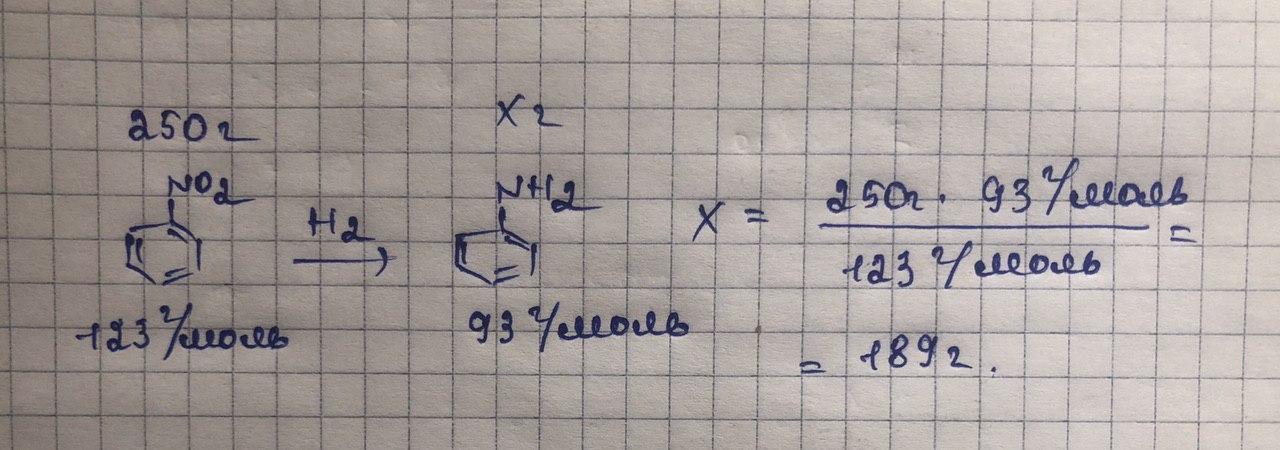 250г
NO2
H2
123 г/моль
X г
NH2
93 г/моль
X = 250г · 93 г/моль =
123 г/моль
= 189г.